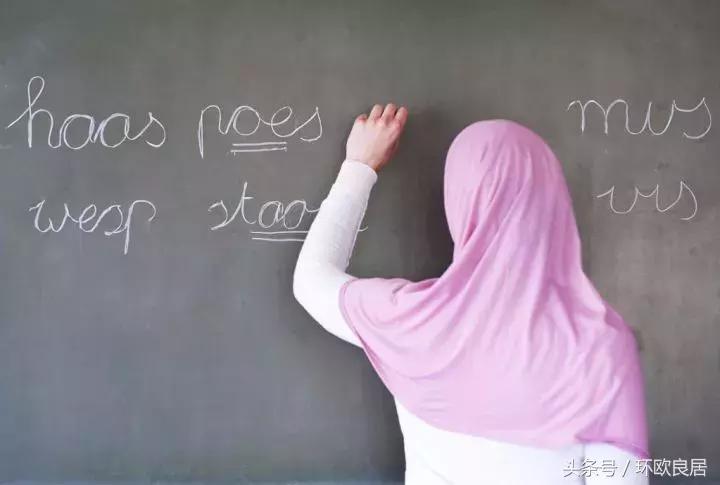 haas poes mus
wesp vis
头条号/环欧良居